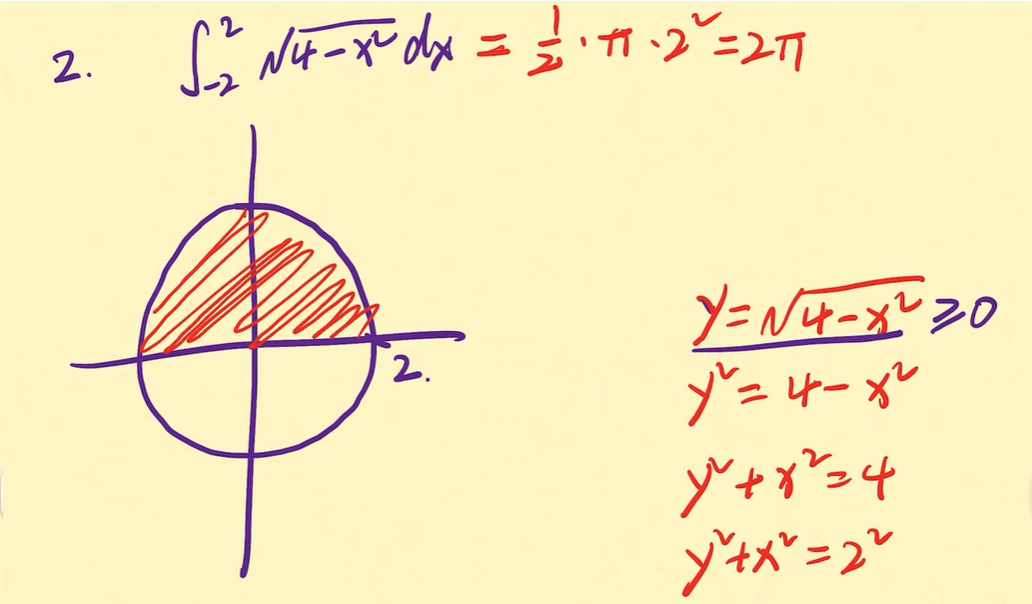 2. ∫₋₂² √(4-x²) dx = 1/2 · π · 2² = 2π
2.
y = √(4-x²) ≥ 0
y² = 4 - x²
y² + x² = 4
y² + x² = 2²